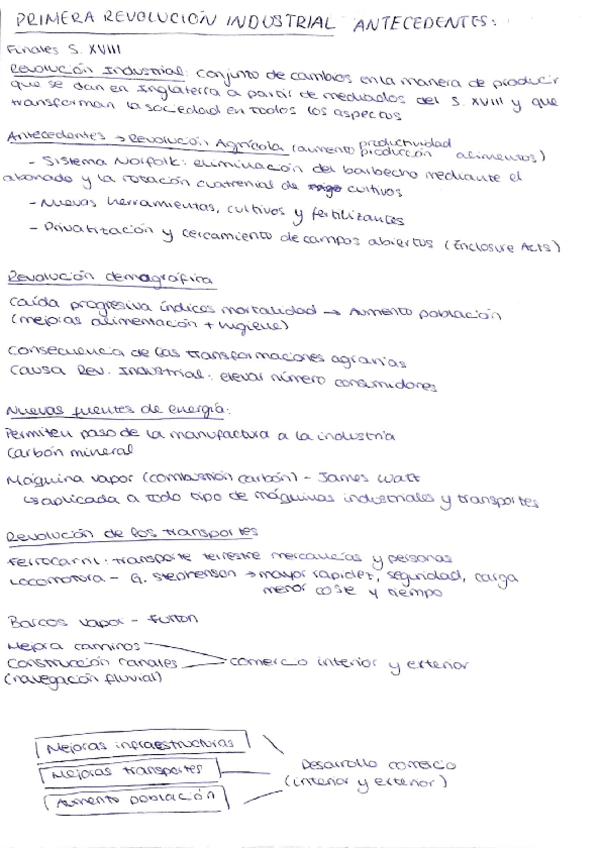 PRIMERA REVOLUCIÓN INDUSTRIAL ANTECEDENTES:
Finales S. XVIII
Revolución Industrial: conjunto de cambios en la manera de producir
que se dan en Inglaterra a partir de mediados del S. XVIII y que
transforman la sociedad en todos los aspectos
Antecedentes → Revolución Agrícola (aumento productividad producción alimentos)
- Sistema Norfolk: eliminación del barbecho mediante el
abonado y la rotación cuatrenial de cultivos
- Nuevas herramientas, cultivos y fertilizantes
- Privatización y cercamiento de campos abiertos (Enclosure Acts)
Revolución demográfica
Caída progresiva índices mortalidad → Aumento población
(mejoras alimentación + higiene)
Consecuencia de las transformaciones agrarias
Causa Rev. Industrial: elevar número consumidores
Nuevas fuentes de energía:
Permiten paso de la manufactura a la industria
Carbón mineral
Máquina vapor (combustión carbón) - James Watt
↳ aplicada a todo tipo de máquinas industriales y transportes
Revolución de los transportes
Ferrocarril: transporte terrestre mercancías y personas
Locomotora - G. Stephenson → mayor rapidez, seguridad, carga
menor coste y tiempo
Barcos vapor - Fulton
Mejora caminos
Construcción canales
comercio interior y exterior
(navegación fluvial)
Mejoras infraestructuras
Mejoras transportes
Aumento población
Desarrollo comercio
(interior y exterior)